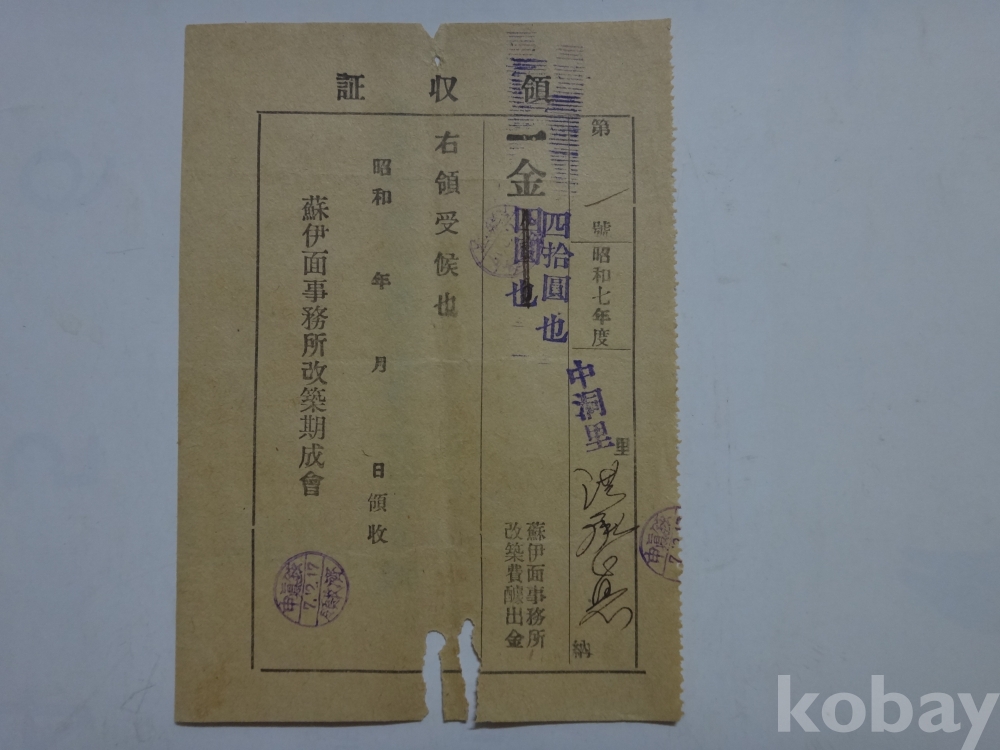 領収証
第 號
昭和七年度
中洞里 里
納
一金
四拾圓也
四圓也
蘇伊面事務所
改築費醵出金
右領受候也
昭和 年 月 日領收
蘇伊面事務所改築期成會
7.2.17
kobay